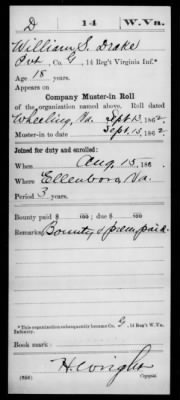 D 14 W.Va.
William S. Drake
Pvt, Co. G, 14 Reg't Virginia Inf.*
Age 18 years.
Appears on
Company Muster-in Roll
of the organization named above. Roll dated
Wheeling, Va. Sept 15, 1862.
Muster-in to date Sept. 15, 1862.
Joined for duty and enrolled:
When Aug 15, 186
Where Ellenboro, Va.
Period 3 years.
Bounty paid $ 100; due $ 100
Remarks: Bounty & prem. paid.
*This organization subsequently became Co. G, 14 Reg't W. Va.
Infantry.
Book mark:
H. Wright
Copyist.